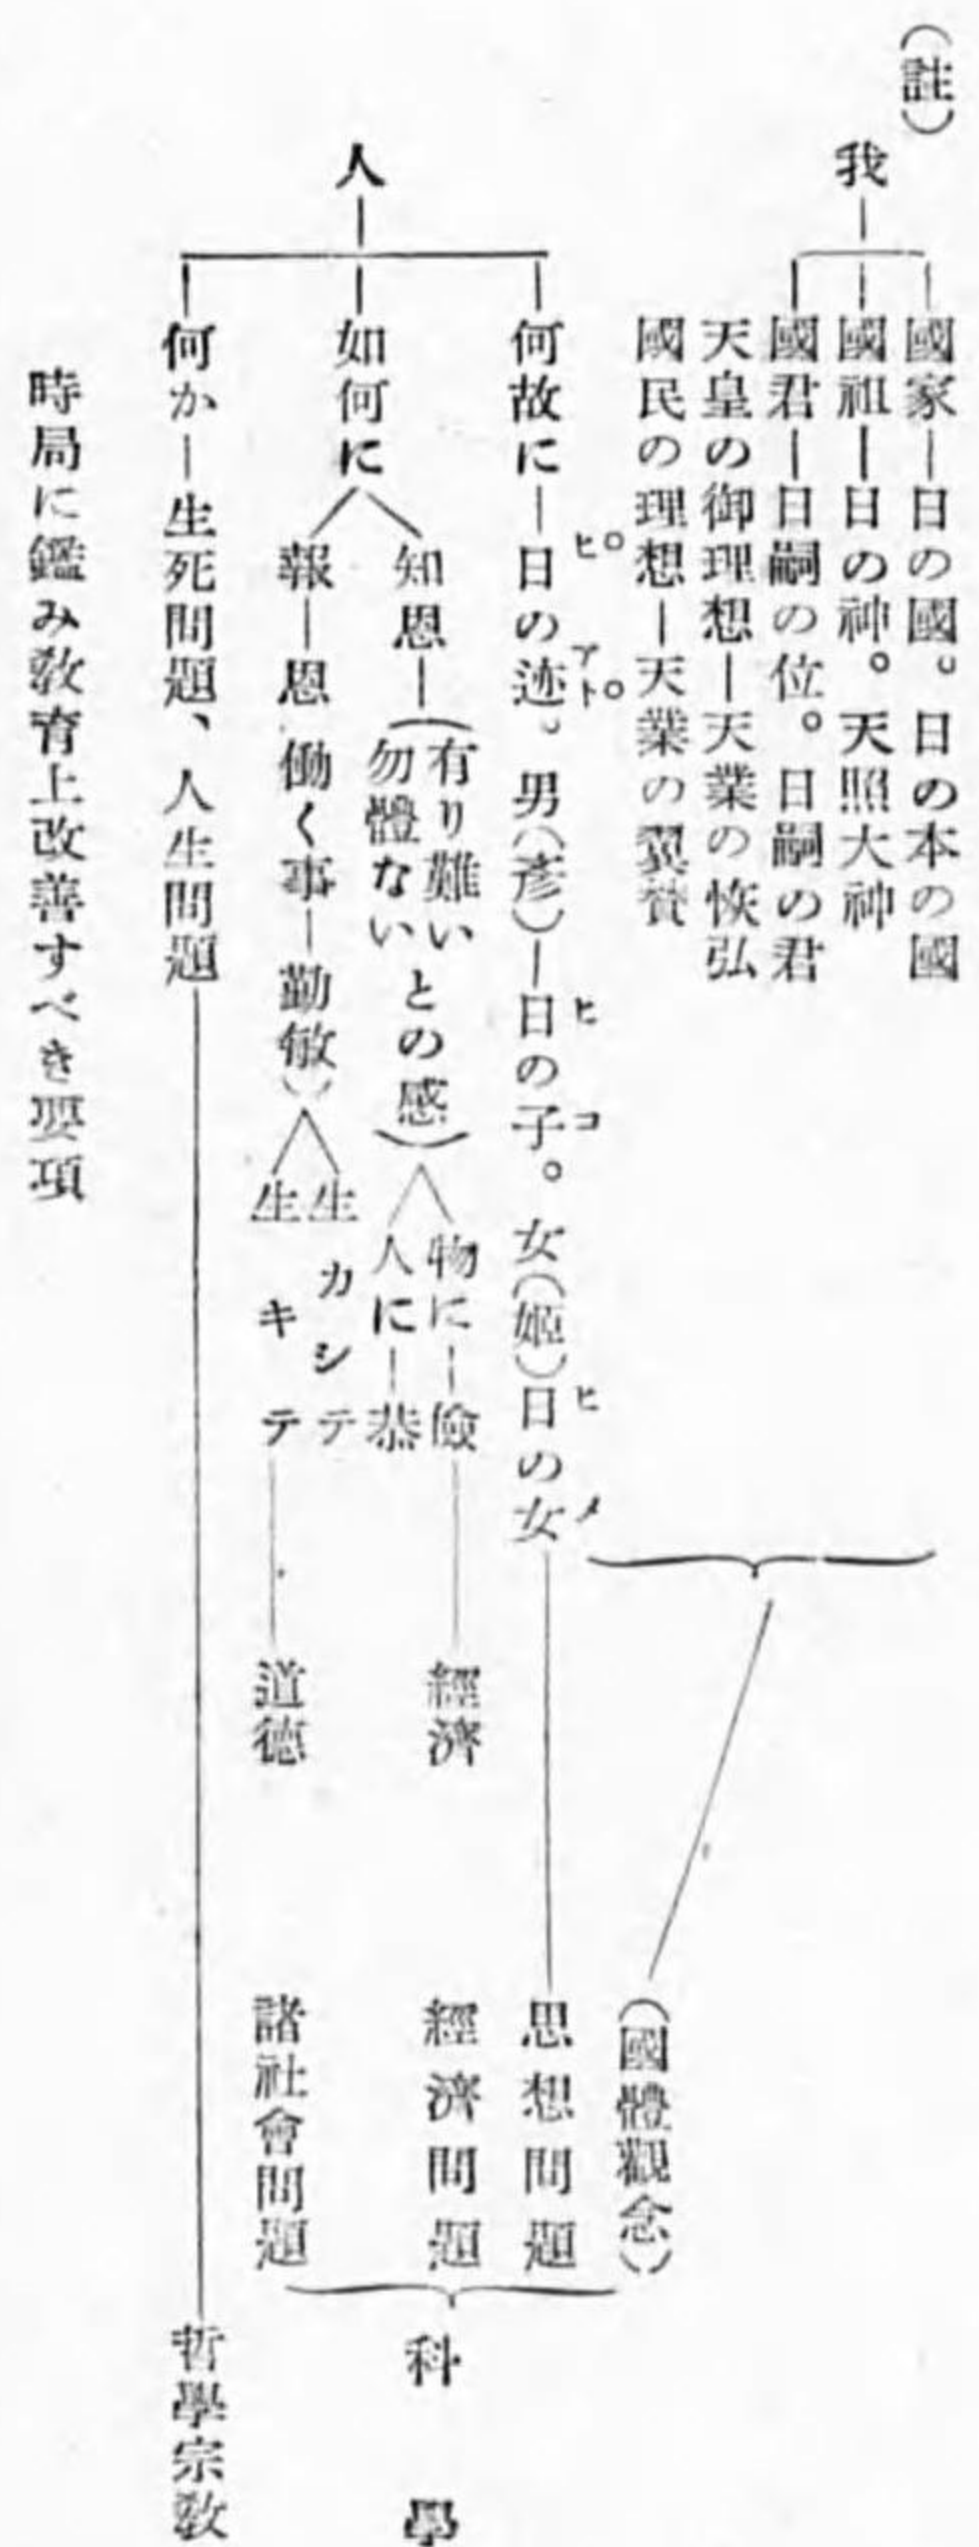 (註)
我
國家―日の國。日の本の國
國祖―日の神。天照大神
國君―日嗣の位。日嗣の君
天皇の御理想―天業の恢弘
國民の理想―天業の翼贊
(國體觀念)
人
何故に―日の迹。男(彦)―日の子。女(姬)日の女
ヒ アト ヒ コ ヒ メ
思想問題
如何に
知恩―(有り難い
勿體ない
との感)
物に―儉
人に―恭
經濟
經濟問題
報―恩 働く事―勤敏)
生カシテ
生キテ
道德
諸社會問題
科學
何か―生死問題、人生問題
哲學宗敎
時局に鑑み敎育上改善すべき要項